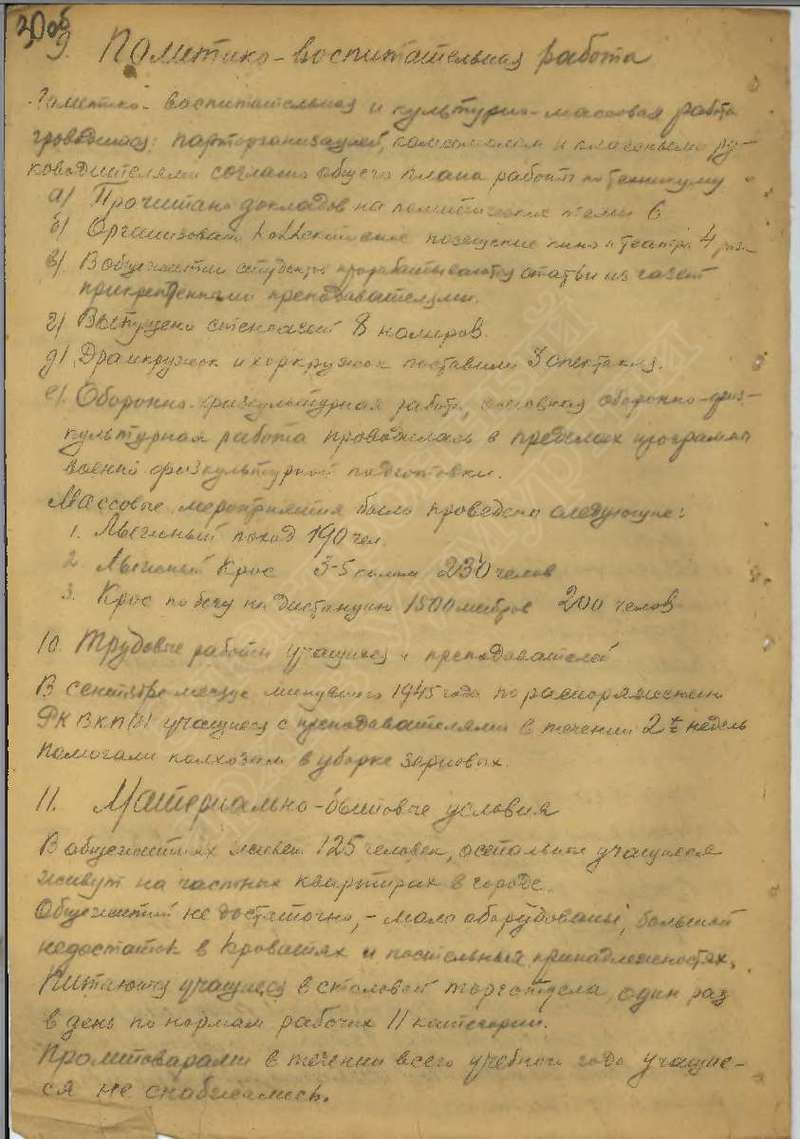 30об
9. Политико-воспитательная работа
Политико-воспитательная и культурно-массовая работа
проводилась: парторганизацией, комсомолом и классными ру-
ководителями согласно общего плана работы по техникуму
а/ Прочитано докладов на политические темы 6
б/ Организовано коллективное посещение кино и театра 4 раза
в/ В общежитии студенты прорабатываются статьи из газет
прикрепленными преподавателями.
г/ Выпущено стенгазет 8 номеров.
д/ Драмкружок и хоркружок поставили 3 спектакля.
е/ Оборонно-физкультурная работа, оборонно-физ-
культурная работа проводилась в пределах программы
военно физкультурной подготовки.
Массовые мероприятия было проведено следующие:
1. Лыжный поход 190 чел.
2. Лыжный Крос 3-5 килом 230 челов
3. Крос по бегу на дистанцию 1500 метров 200 челов
10. Трудовые работы учащихся и преподавателей
В сентябре месяце минувшего 1945 года по распоряжению
РК ВКП/б/ учащиеся с преподавателями в течении 2½ недель
помогали колхозам в уборке зерновых.
11. Материально-бытовые условия
В общежитиях живет 125 человек, остальные учащиеся
живут на частных квартирах в городе.
Общежитий не достаточно, - мало оборудованы, большой
недостаток в кроватях и постельных принадлежностях.
Питаются учащиеся в столовой торготдела, один раз
в день по нормам рабочих II категории.
Промтоварами в течении всего учебного года учащие-
ся не снабжались.